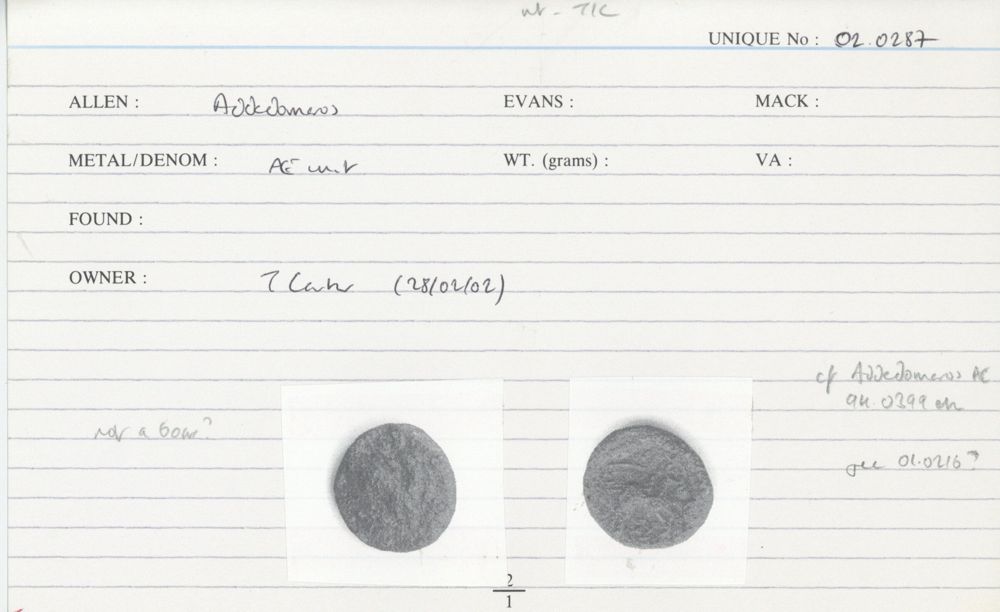 wt - TIC
UNIQUE No : 02.0287
ALLEN : Addedomaros EVANS : MACK :
METAL/DENOM : AE unit WT. (grams) : VA :
FOUND :
OWNER : T (28/02/02)
cf Addedomaros AE
94.0399 etc
not a boar?
see 01.0216?
2
1